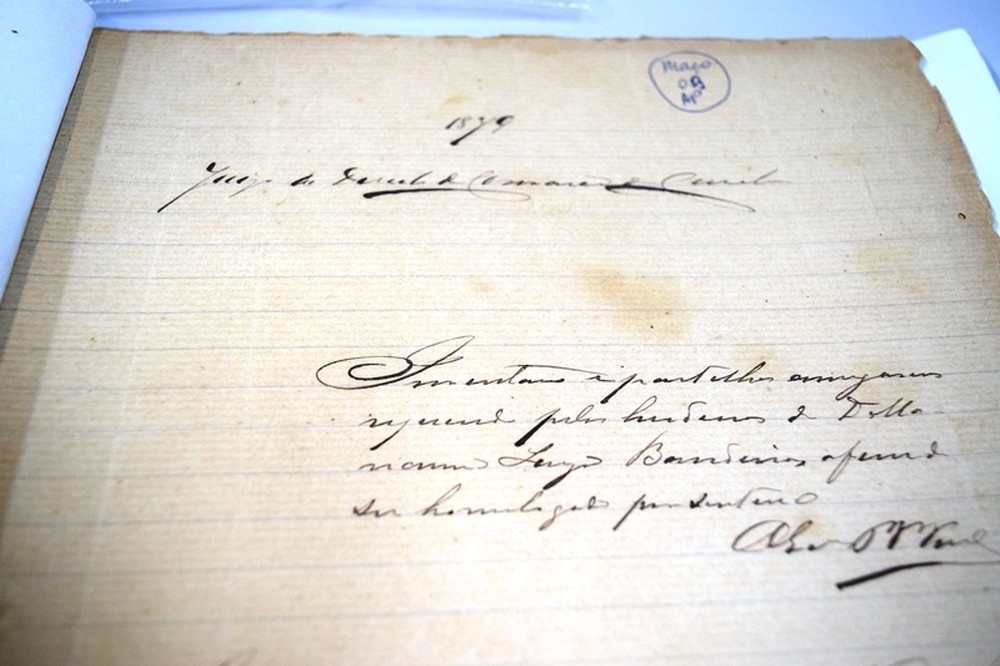 Maço
09
AP
1879
Juizo de Direito da Comarca de
Inventario e partilha amigavel
requerida pelos herdeiros de D. Ma-
rianna Bandeira afim de
ser homologada por sentença